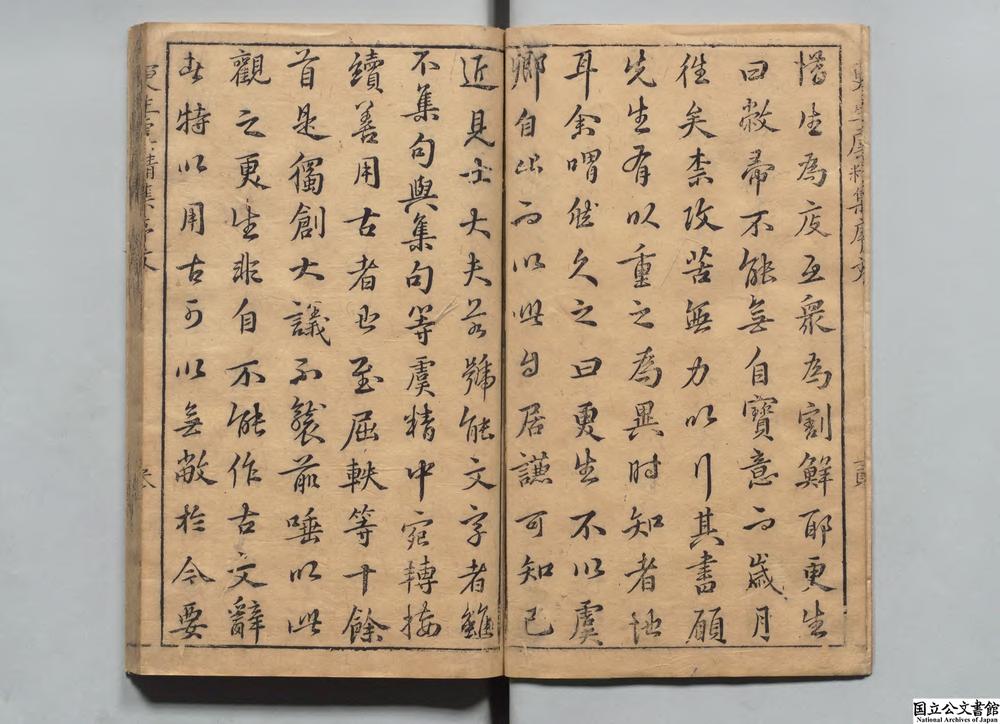 憎生為度亟眾為割鮮耶更生
曰敝帚不能無自寶意而歲月
徃矣柰攻苦無力以行其書願
先生有以重之為異時知者地
耳余喟然久之曰更生不以虞
卿自出而以此自居謙可知已
近見士大夫名號能文字者雖
不集句與集句等虞精中宛轉接
續善用古者也至屈軼等十餘
首是獨創大議不襲前唾以此
觀之更生非自不能作古文辭
者特以用古可以無敵於今要
国立公文書館
National Archives of Japan